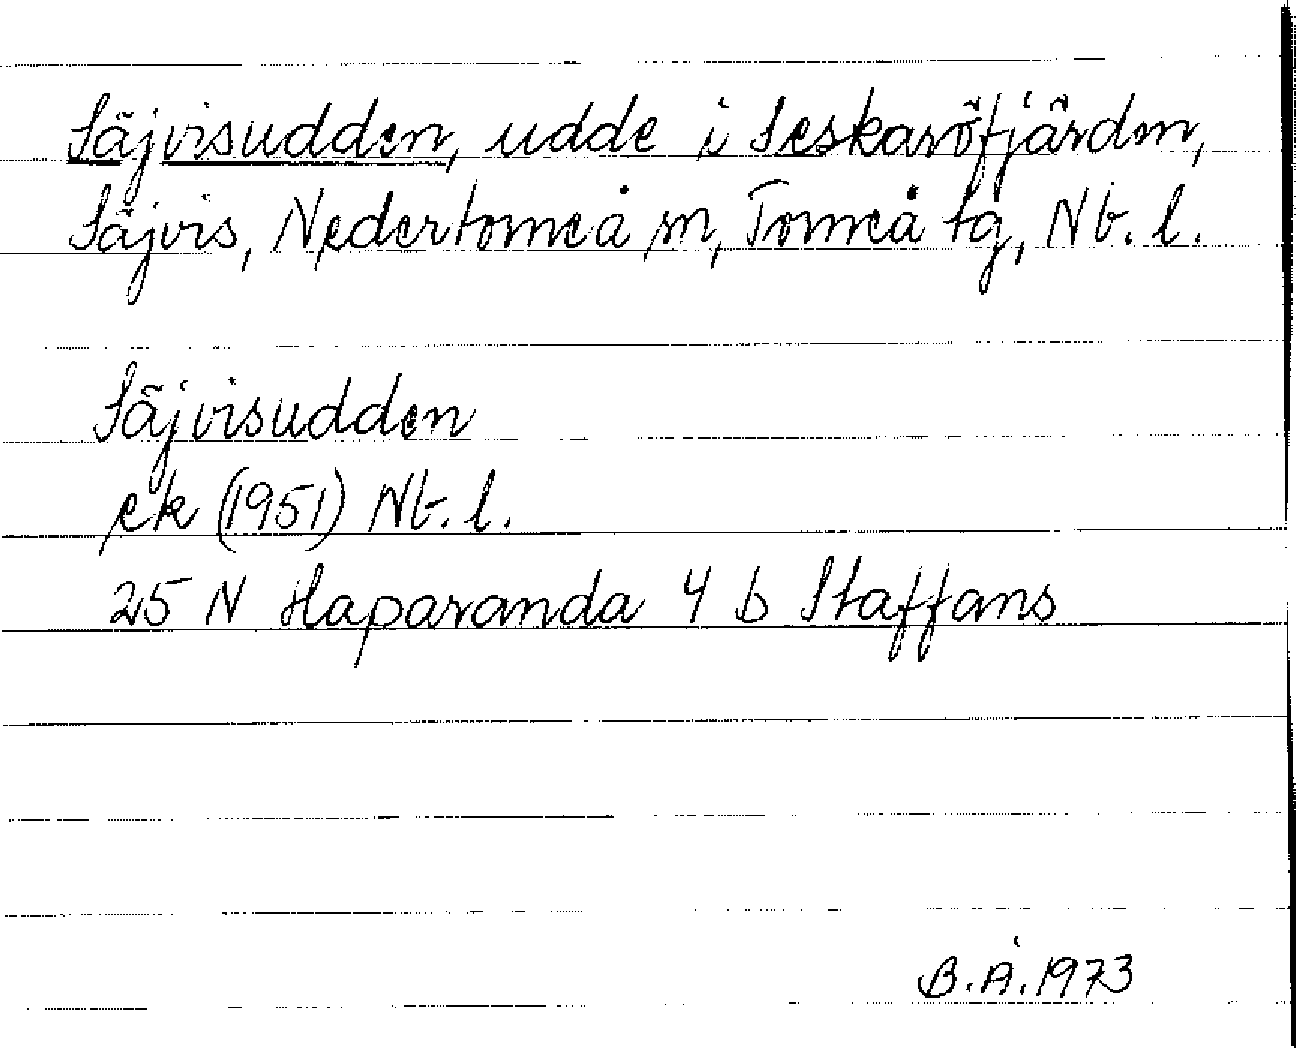 Säjvisudden, udde i Seskaröfjärden,
Säjvis, Nedertorneå sn, Torneå tg, Nb. l.
Säjvisudden
ek (1951) Nb. l.
25 N Haparanda 4 b Staffans
B.Å.1973